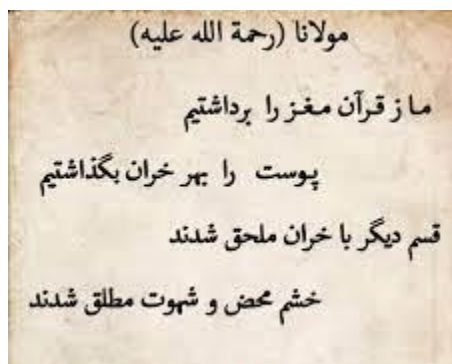 مولانا (رحمة الله علیه)
ما ز قرآن مغز را برداشتیم
پوست را بهر خران بگذاشتیم
قسم دیگر با خران ملحق شدند
خشم محض و شهوت مطلق شدند